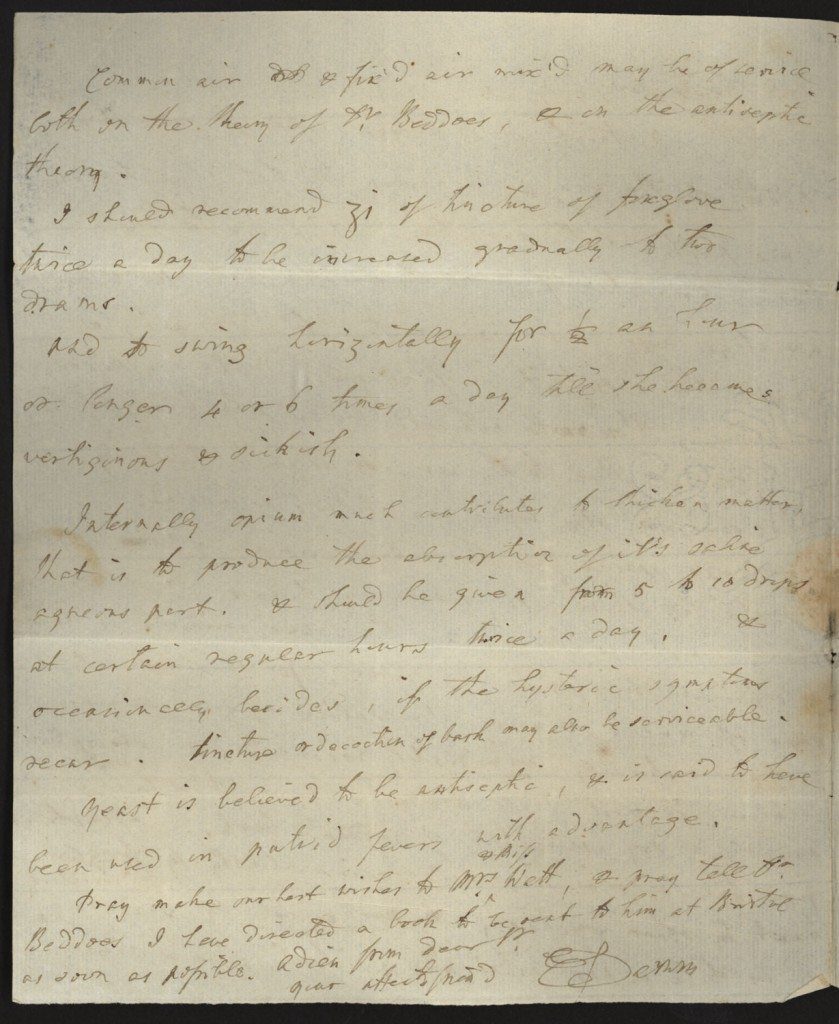 Common air & fix'd air mix'd may be of service
both on the theory of Dr Beddoes, & on the antiseptic
theory.
I should recommend ʒi of tincture of foxglove
twice a day to be increased gradually to two
drams.
And to swing horizontally for ½ an hour
or longer 4 or 6 times a day till she becomes
vertiginous & sickish.
Internally opium much contributes to thicken matter,
that is to produce the absorption of it's saline
aqueous part. & should be given from 5 to 10 drops
at certain regular hours twice a day. &
occasionally besides, if the hysteric symptoms
recur. tincture or decoction of bark may also be serviceable.
Yeast is believed to be antiseptic, & is said to have
been used in putrid fevers with advantage.
& Miss
Pray make our best wishes to Mrs Watt, & pray tell Dr
Beddoes I have directed a book to be sent to him at Bristol
as soon as possible. Adieu from dear Sr
your affect friend E Darwin